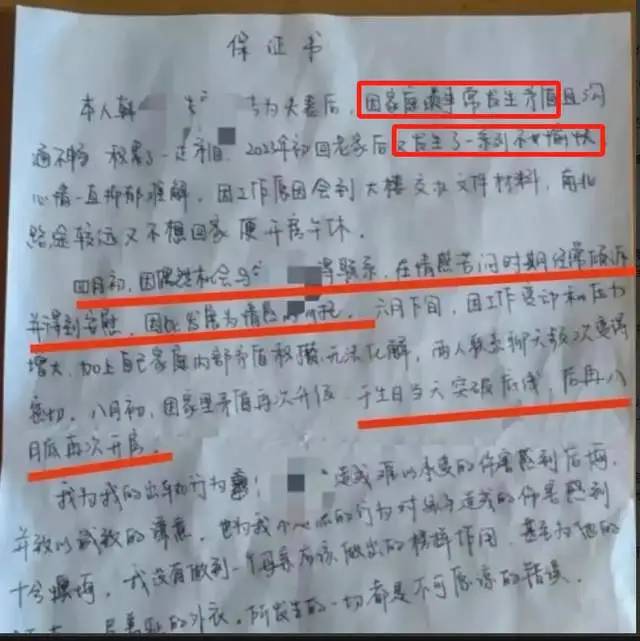 保证书
本人韩 为夫妻后，因家庭琐事常发生矛盾且沟
通不畅 积累了一定 2023年初回老家后又发生了一系列不愉快
心情一直抑郁难解，因工作原因会到大楼交收文件材料，南北
路途较远又不想回家 便开房午休。
四月初，因偶然机会与 得联系，在情感苦闷时期经常倾诉
并得到安慰，因此发展为情感 六月下旬，因工作变动和压力
增大，加上自己家庭内部矛盾积攒无法化解，两人联系聊天频次变得
密切。八月初，因家里矛盾再次升级 于生日当天突破底线，后再八
月底再次开房。
我为我的出轨行为 造成难以承受的伤害感到后悔
并致以诚挚的 也为我 的行为对 造成的伤害感到
十分 我没有做到一个母亲应该做出的榜样作用 甚至为他的
的外衣。所发生的一切都是不可原谅的错误